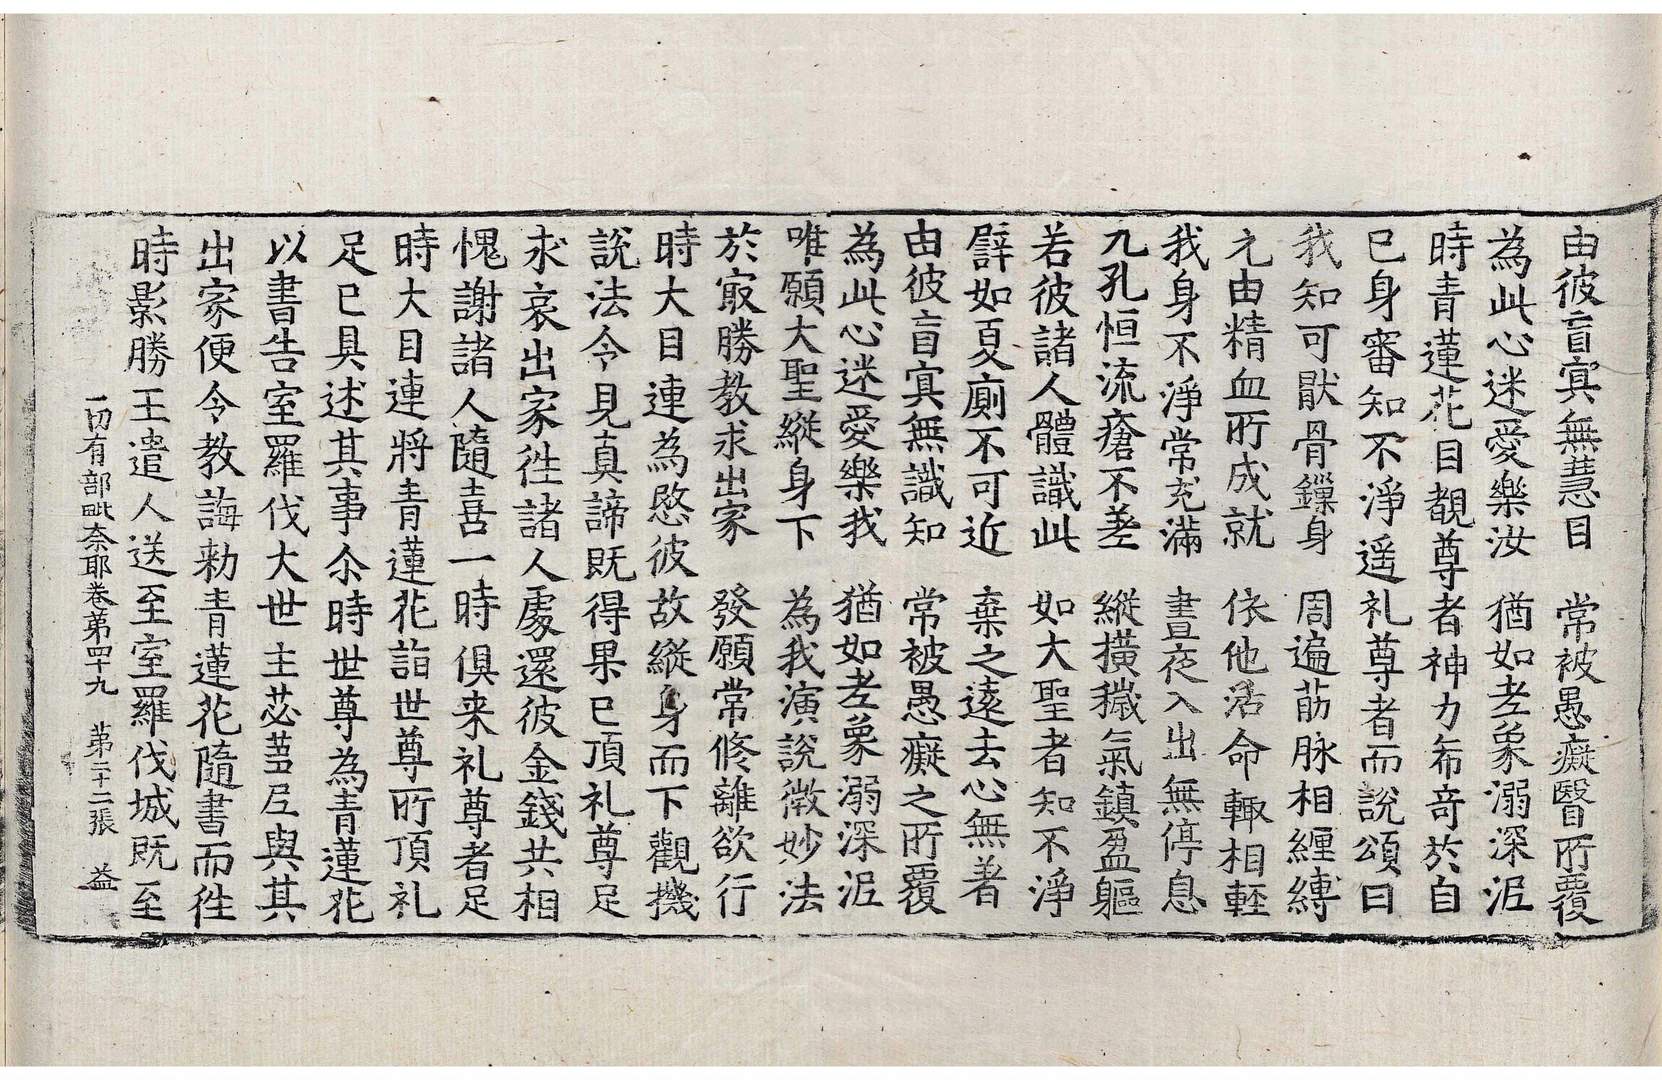 由彼盲冥無慧目　常被愚癡瞖所覆
為此心迷愛樂汝　猶如老象溺深泥
時青蓮花目覩尊者神力希奇於自
己身審知不淨遥礼尊者而說頌曰
我知可猒骨鏁身　周遍荕脉相纒縛
元由精血所成就　依他活命輙相輕
我身不淨常充滿　晝夜入出無停息
九孔恒流瘡不差　縱撗穢氣鎮盈軀
若彼諸人體識此　如大聖者知不淨
譬如夏廁不可近　棄之遠去心無著
由彼盲冥無識知　常被愚癡之所覆
為此心迷愛樂我　猶如老象溺深泥
唯願大聖縱身下　為我演說微妙法
於寂勝教求出家　發願常修離欲行
時大目連為愍彼故縱身而下觀機
說法令見真諦既得果已頂礼尊足
求哀出家徃諸人處還彼金錢共相
愧謝諸人隨喜一時俱来礼尊者足
時大目連將青蓮花詣世尊所頂礼
足已具述其事尒時世尊為青蓮花
以書告室羅伐大世主苾蒭尼與其
出家便令教誨勑青蓮花隨書而徃
時影勝王遣人送至室羅伐城既至
一切有部毗奈耶卷第四十九　第二十二張　益